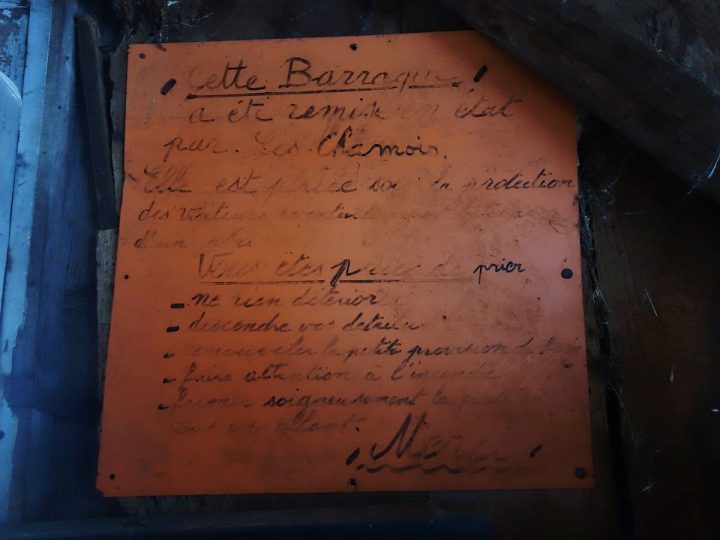 Cette Barraque
a été remise en état
par. Les Chamois.
Elle est placée sous la protection
des visiteurs
d'un abri
Vous êtes priés de prier
- ne rien détérior
- descendre vos detritus
- renouveler la petite provision de
- faire attention à l'incendie
- fermer soigneusement la porte en
vous en allant.
Merci